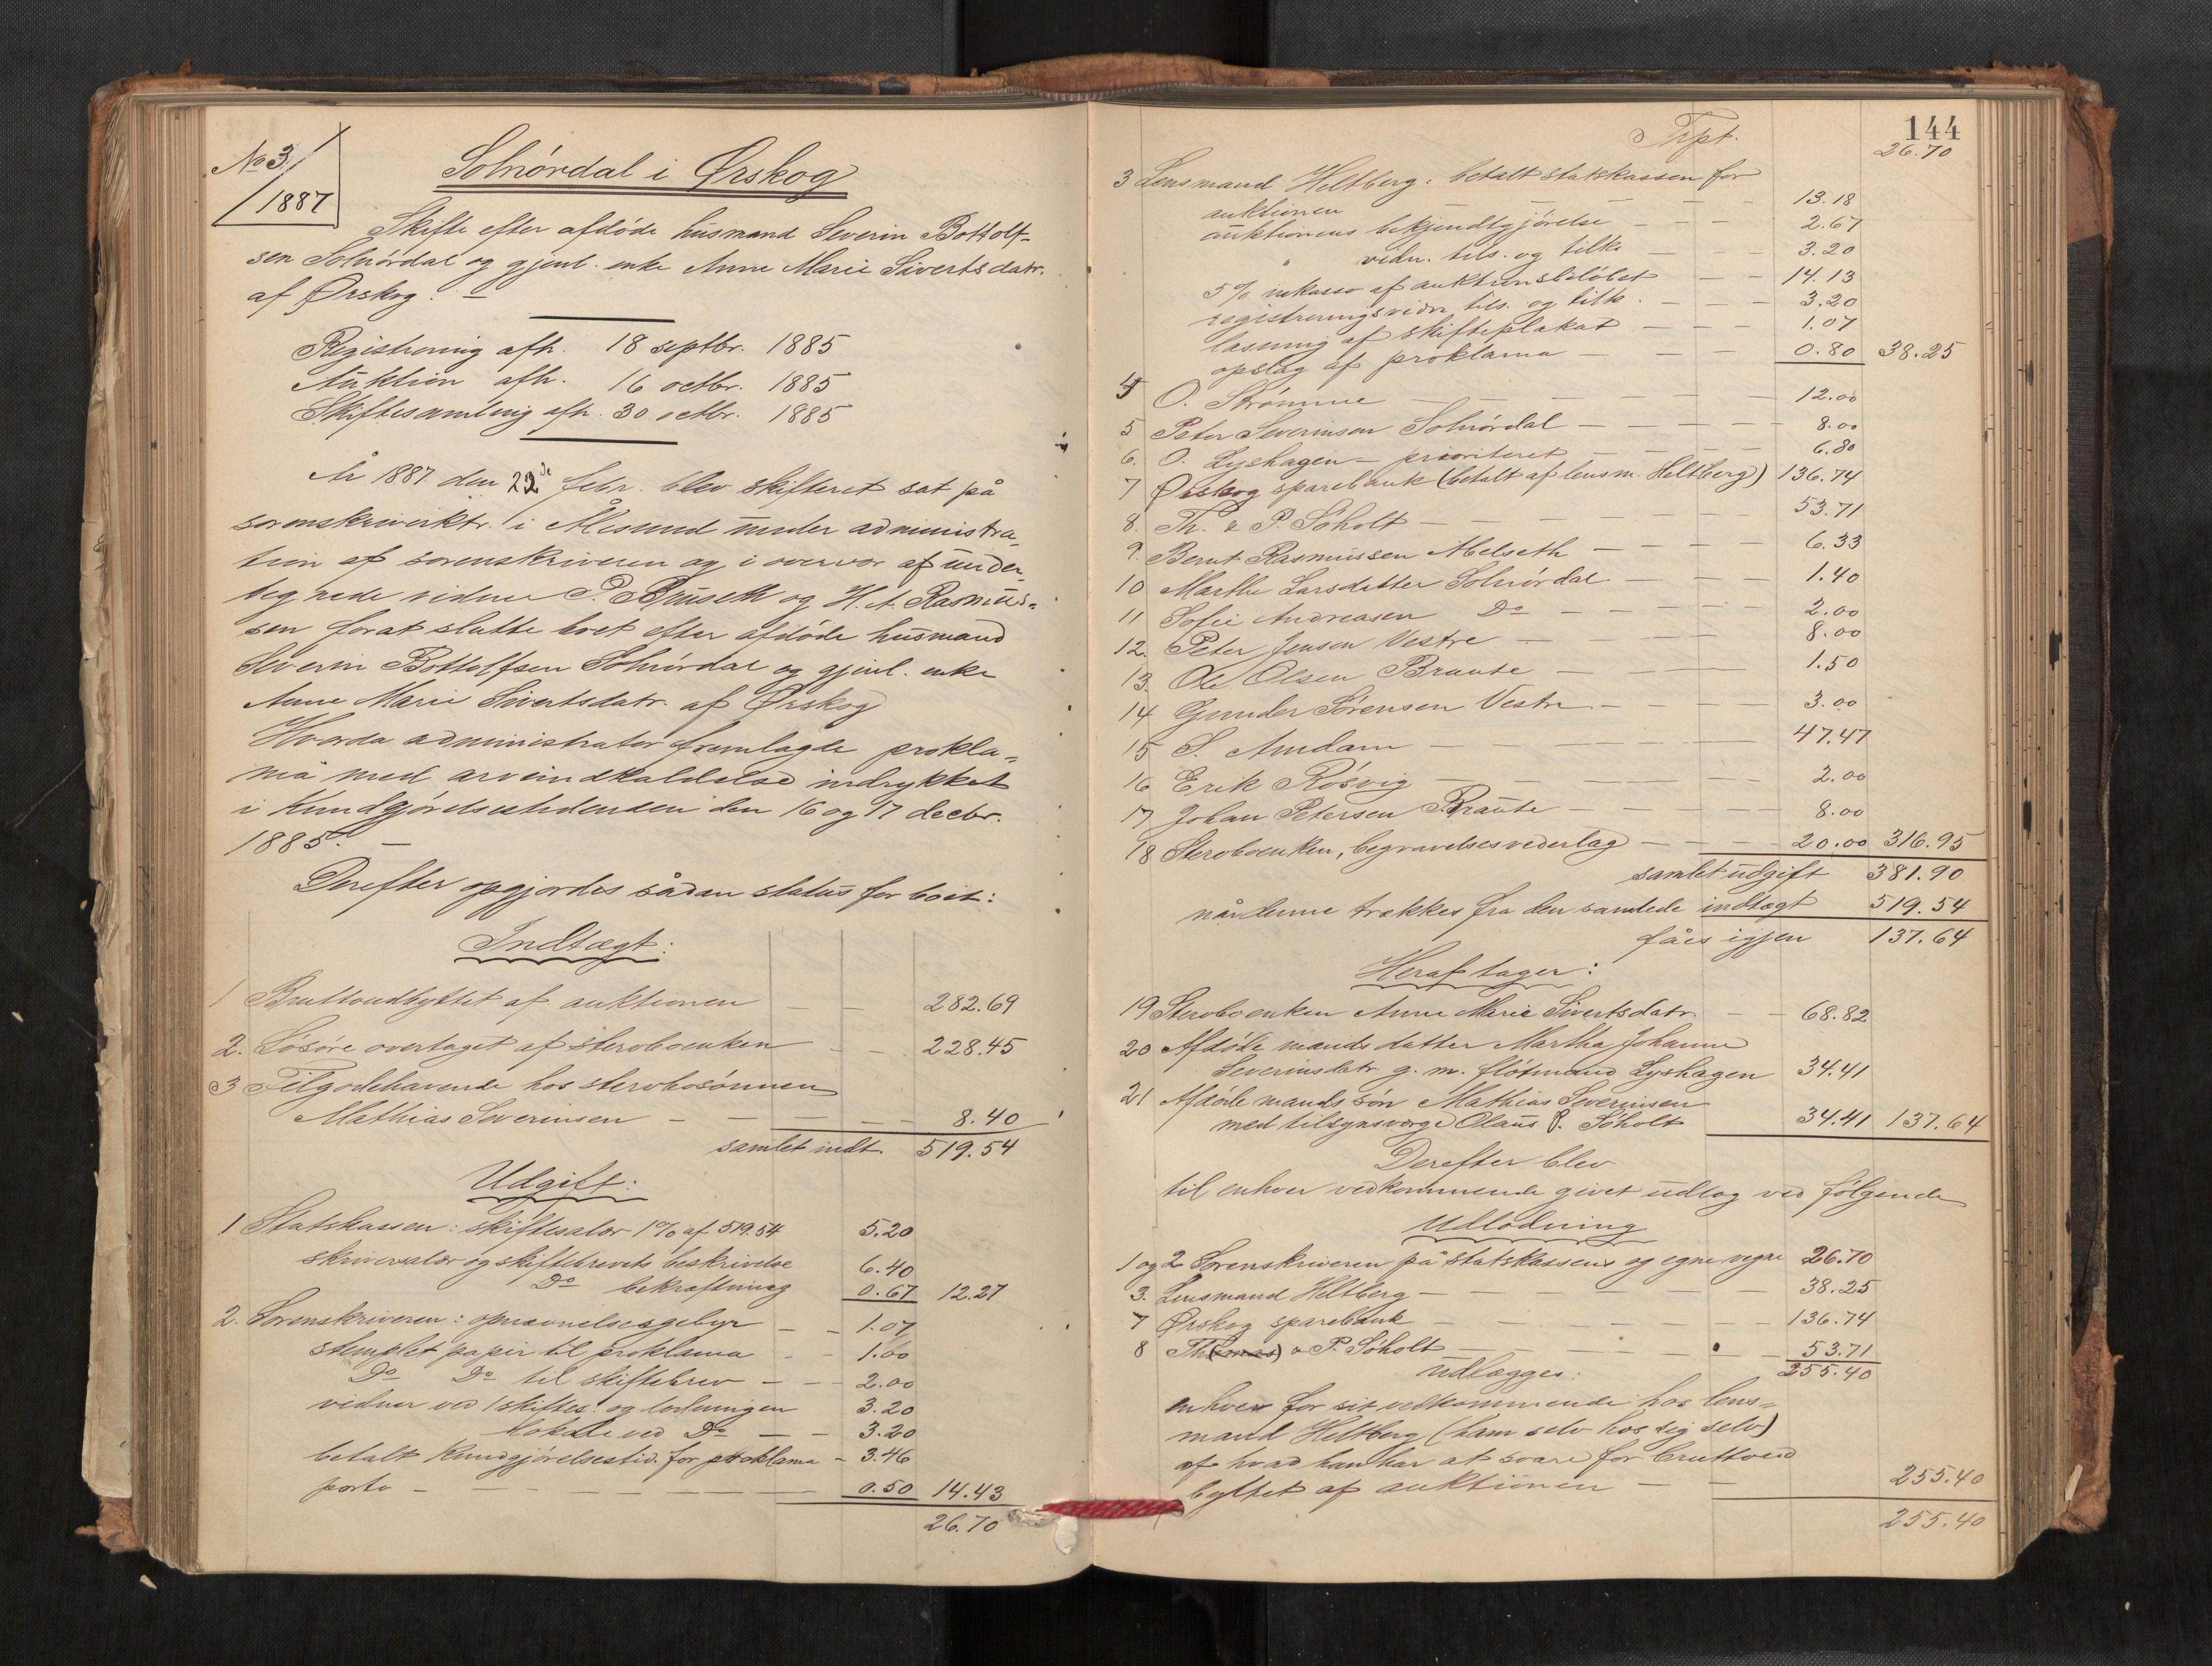 No 3/1887
Solnördal i Ørskog
Skifte efter afdøde husmand Severin Bottolf-
sen Solnördal og gjenl. enke Anne Marie Sivertsdatr.
af Ørskog. –
Registrering afh. 18 septbr. 1885
Auktion afh. 16 octbr. 1885
Skiftesamling afh. 30 octbr. 1885
År 1887 den 22de febr. blev skifteret sat på
sorenskriverktr. i Ålesund under administra-
tion af sorenskriveren og i overvær af under-
tegnede vidner P. Bruseth og H. A. Rasmus-
sen forat slutte boet efter afdøde husmand
Severin Bottolfsen Solnördal og gjenl. enke
Anne Marie Sivertsdatr. af Ørskog
Hvorda administrator fremlagde prokla-
ma med arveindkaldelse indrykket
i Kundgjörelsestidenden den 16 og 17 decbr.
1885. –
Derefter opgjordes sådan status for boet:
Indtægt:
1 Bruttoudbyttet af auktionen – – 282.69
2. Lösöre overtaget af stervboenken – – 228.45
3 Tilgodehavende hos stervbosönnen
Mathias Severinsen – – – 8.40
samlet indt. 519.54
Udgift:
1 Statskassen: skiftesalær 1% af 519.54 5.20
skriversalær og skiftebrevets beskrivelse 6.40
Do bekræftning 0.67 12.27
2. Sorenskriveren: opnævnelsesgebyr – – 1.07
stemplet papir til proklama – – 1.00
Do Do til skiftebrev – – 2.00
vidner ved skiftes. og lodningen 3.20
lokale ved Do – – 3.20
betalt Kundgjörelsestid. for proklama – 3.46
porto – – – – – 0.50 14.43
26.70
144
Trpt. 26.70
3 Lensmand Heltberg: betalt statskassen for
auktionen – – – – 13.18
auktionens bekjendtgjörelse – – – 2.67
" vidn. tils. og tilk. – – – 3.20
5% inkasso af auktionsbelöbet – – 14.13
registreringsvidn. tils. og tilk. – – – 3.20
læsning af skifteplakat – – – 1.07
opslag af proklama – – – 0.80 38.25
4 O. Strömme – – – – – 12.00
5 Peter Severinsen Solnördal – – – – 8.00
6. O. Lyshagen – prioriteret – – – – 6.80
7 Ørskog sparebank (betalt af lensm. Heltberg) 136.74
8. Th. & P. Söholt – – – – – 53.71
9. Bernt Rasmussen Abelseth – – – – 6.33
10 Marthe Larsdatter Solnördal – – – 1.40
11 Sofie Andreasen Do – – – – 2.00
12. Peter Jensen Vestre – – – – 8.00
13. Ole Olsen Braute – – – – 1.50
14 Gunder Sörensen Vestre – – – – 3.00
15 S. Amdam – – – – – 47.47
16 Erik Rösvig – – – – – 2.00
17 Johan Petersen Braute – – – – 8.00
18 Stervboenken, begravelsesvederlag – – – 20.00 316.95
samlet udgift 381.90
når denne trækkes fra den samlede indtægt 519.54
fåes igjen 137.64
Heraf tager:
19 Stervboenken Anne Marie Sivertsdatr. – – 68.82
20 Afdöde mands datter Martha Johanne
Severinsdatr g. m. flötmand Lyshagen 34.41
21 Afdöde mands sön Mathias Severinsen
med tilsynsværge Olaus P. Söholt 34.41 137.64
Derefter blev
til enhver vedkommende givet udlæg ved fölgende
Udlodning
1 og 2 Sorenskriveren på statskassens og egne vegne 26.70
3. Lensmand Heltberg – – – – – 38.25
7 Ørskog sparebank – – – – – 136.74
8 Th(omas) & P. Söholt – – – – 53.71
udlægges: 255.40
enhver for sit vedkommende hos lens-
mand Heltberg (ham selv hos sig selv)
af hvad han har at svare for bruttoud
byttet af auktionen – – 255.40
255.40